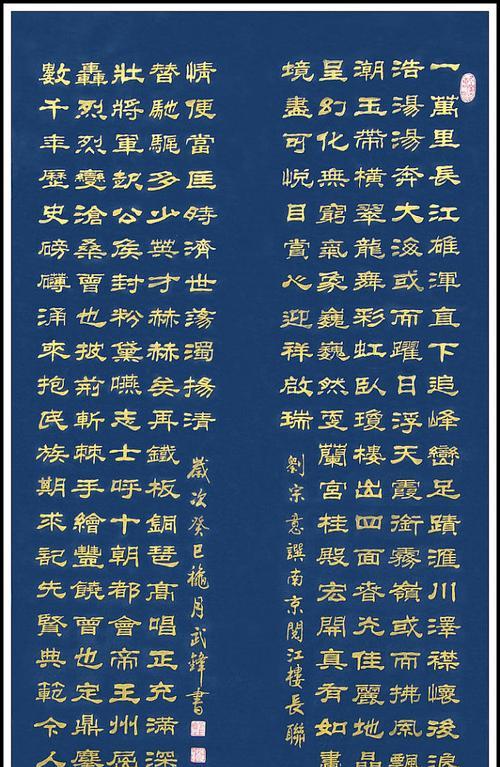 一萬里長江雄渾直下追峰巒足蹟滙川澤襟懷後浪
浩湯湯奔大海或而躍日浮天霞銜霧嶺或而拂風飄
潮玉帶橫翠龍舞彩虹臥瓊樓出四面光佳麗地晶
呈幻化無窮氣象巍巍然蘭宮桂殿宏開真有如畫
境盡可悅目賞心迎祥啟瑞
劉宗意譔南京閱江樓長聯
數千年歷史磅礴涌來抱民族期求記先賢典範令人
轟烈烈變滄桑曾也披荊斬棘手繪豐饒曾也定鼎
壯將軍公侯封粉黛嚥志士呼十朝都會帝王州風
替馳驅多少英才赫赫矣再鐵板銅琶高唱正充滿深
情使當匡時濟世蕩濁揚清
歲次癸巳穐月武鋒書